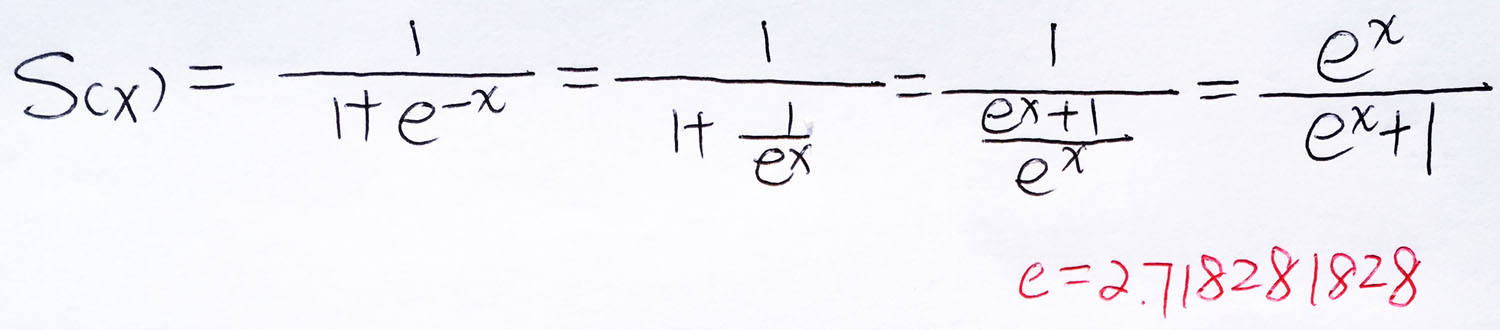 S(x) = \frac{1}{1+e^{-x}} = \frac{1}{1+\frac{1}{e^x}} = \frac{1}{\frac{e^x+1}{e^x}} = \frac{e^x}{e^x+1}
e=2.718281828